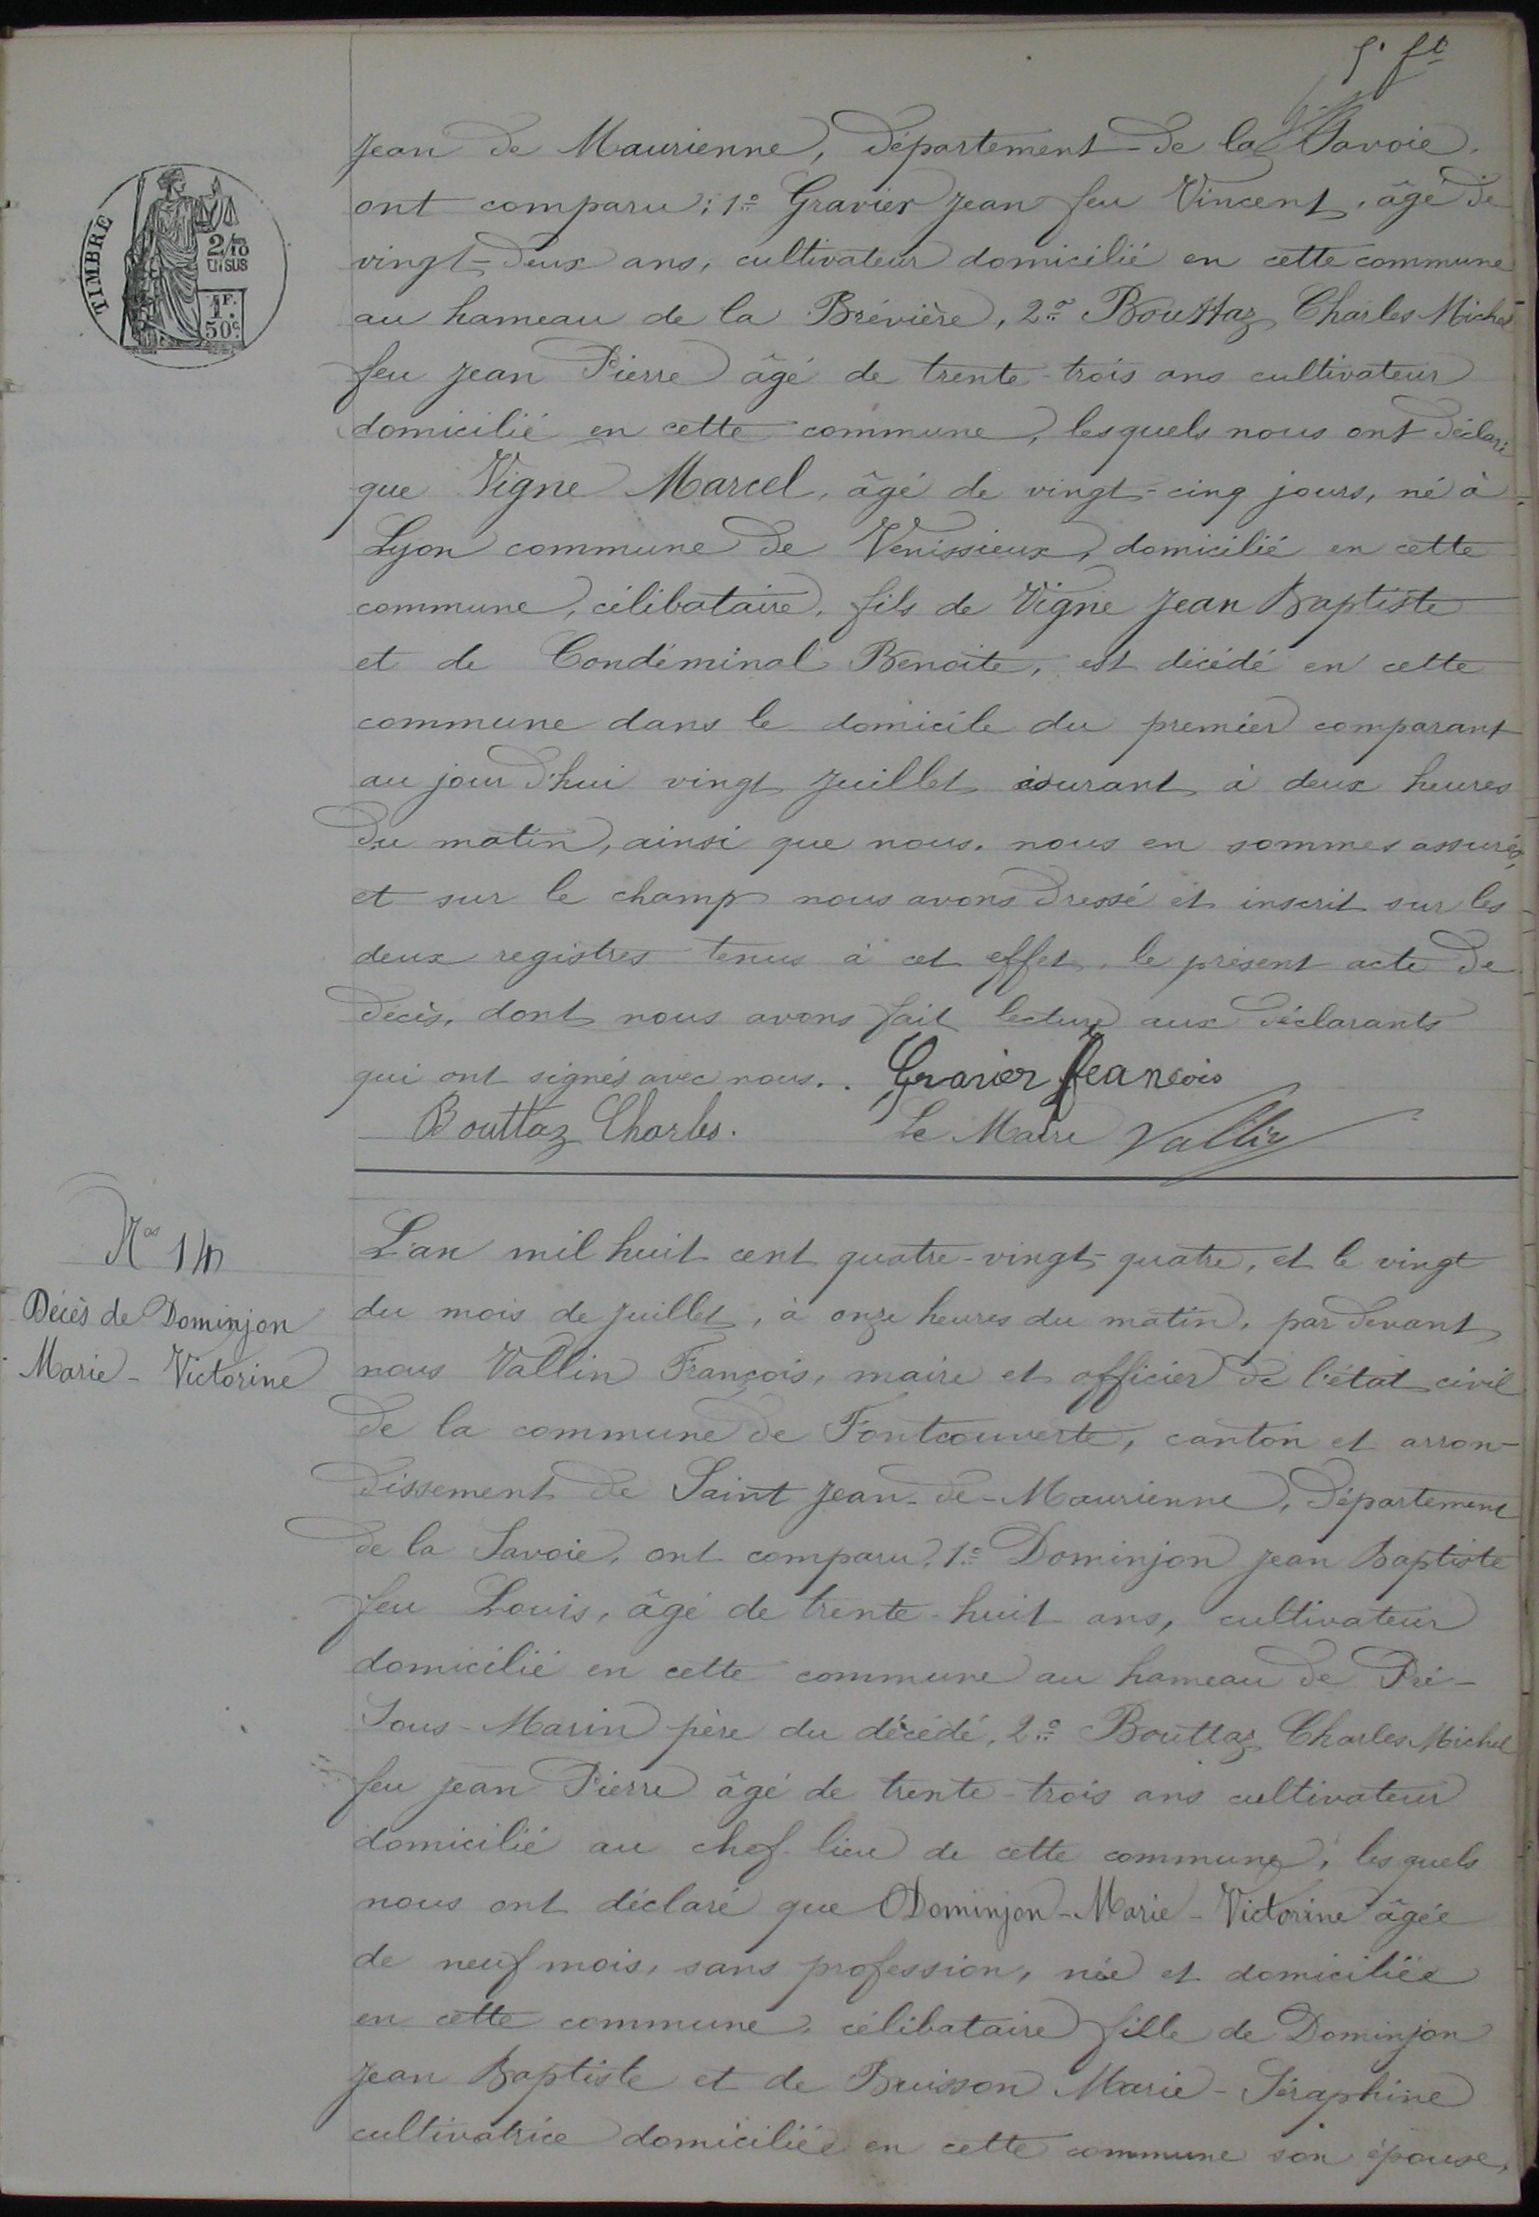 5. ft
Jean de Maurienne, département de la Savoie,
ont comparu: 1º Gravier Jean feu Vincent, âgé de
vingt-deux ans, cultivateur domicilié en cette commune
au hameau de la Brévière, 2º Bouttaz Charles Michel
feu Jean Pierre âgé de trente-trois ans cultivateur
domicilié en cette commune, lesquels nous ont déclaré
que Vigne Marcel, âgé de vingt-cinq jours, né à
Lyon commune de Venissieux, domicilié en cette
commune, célibataire, fils de Vigne Jean Baptiste
et de Condéminal Benoite, est décédé en cette
commune dans le domicile du premier comparant
au jour d'hui vingt Juillet courant à deux heures
du matin, ainsi que nous nous en sommes assurés,
et sur le champ nous avons dressé et inscrit sur les
deux registres tenus à cet effet, le présent acte de
décès, dont nous avons fait lecture aux déclarants
qui ont signés avec nous. . Gravier Jean
Bouttaz Charles. Le Maire Vallin
TIMBRE
2/10
EN SUS
1F.
50c
Nos 14
Décès de Dominjon
Marie - Victorine
L'an mil huit cent quatre-vingt-quatre, et le vingt
du mois de Juillet, à onze heures du matin, par devant
nous Vallin François, maire et officier de l'état civil
de la commune de Fontcouverte, canton et arron-
dissement de Saint Jean-de-Maurienne, département
de la Savoie, ont comparu, 1º Dominjon Jean Baptiste
feu Louis, âgé de trente-huit ans, cultivateur
domicilié en cette commune au hameau de Pré-
Sous-Marin père du décédé, 2º Bouttaz Charles Michel
feu Jean Pierre âgé de trente-trois ans cultivateur
domicilié au chef lieu de cette commune, les quels
nous ont déclaré que Dominjon-Marie-Victorine âgée
de neuf mois, sans profession, née et domiciliée
en cette commune, célibataire fille de Dominjon
Jean Baptiste et de Buisson Marie-Séraphine
cultivatrice domiciliée en cette commune son épouse,